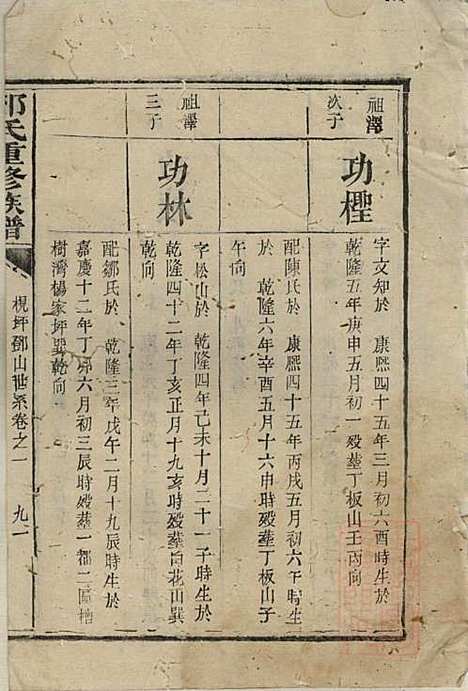 祖澤
次子
功樫
字文知於 康熙四十五年三月初六酉時生於
乾隆五年庚申五月初一殁塟丁板山壬丙向
配陳氏於 康熙四十五年丙戌五月初六午時生
於 乾隆六年辛酉五月十六申時殁塟丁板山子
午向
祖澤
三子
功林
字松山於 乾隆四年己未十月二十一子時生於
乾隆四十二年丁亥正月十九亥時殁塟白花山巽
乾向
配鄒氏於 乾隆三年戊午二月十九辰時生於
嘉慶十二年丁卯六月初三辰時殁塟一都二區
樹灣楊家坪巽乾向
氏重修族譜
梘坪鄧山世系卷之一 九一